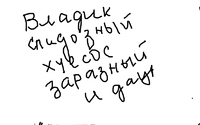 Владик
спидозный
хуесос
заразный
и даун